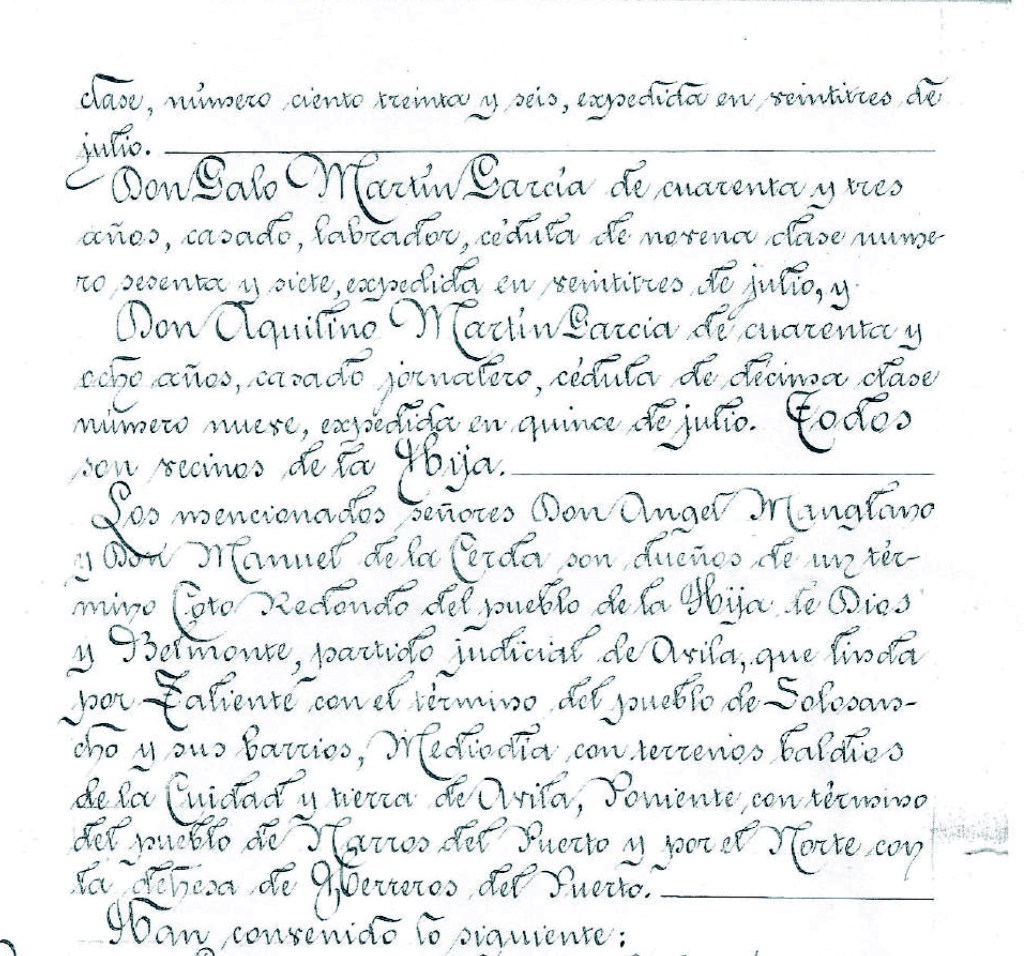 clase, número ciento treinta y seis, expedida en veintitres de
julio.
Don Galo Martín García de cuarenta y tres
años, casado, labrador, cédula de novena clase nume-
ro sesenta y siete, expedida en veintitres de julio, y
Don Aquilino Martín García de cuarenta y
ocho años, casado jornalero, cédula de décima clase
número nueve, expedida en quince de julio. Todos
son vecinos de la Hija.
Los mencionados señores Don Angel Manglano
y Don Manuel de la Cerda son dueños de un tér-
mino Coto Redondo del pueblo de la Hija de Dios
y Belmonte, partido judicial de Avila, que linda
por Saliente con el término del pueblo de Solosan-
cho y sus barrios, Mediodía con terrenos baldios
de la Cuidad y tierra de Avila, Poniente con término
del pueblo de Narros del Puerto y por el Norte con
la dehesa de Herreros del Puerto.
Han convenido lo siguiente: